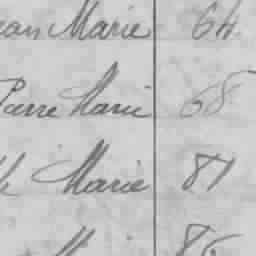 ean Marie 64
Pierre Marie 68
h Marie 81
Marie 86